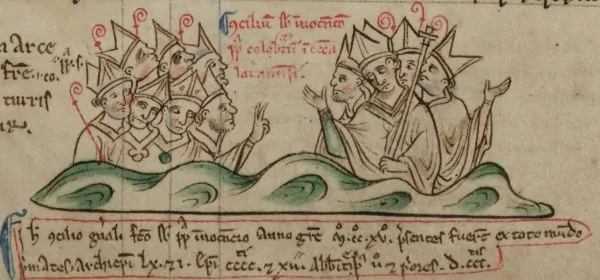 n arce
fre
turis
Cōciliū sb' inocētio
pp celebrātū ī eccā
lat'anēsi.
In h' ↄcilio gn̄ali fc̄o sb' pp̄ innocn̄cio Anno gr̄e .M̊.cc.xv. p̄sentes fuer̄t ex toto mūdo
p̄mates, Archiep̄i lx.71. Ep̄i cccc.7 xii. Abb̄es 7 p̄ores. d.ccc.